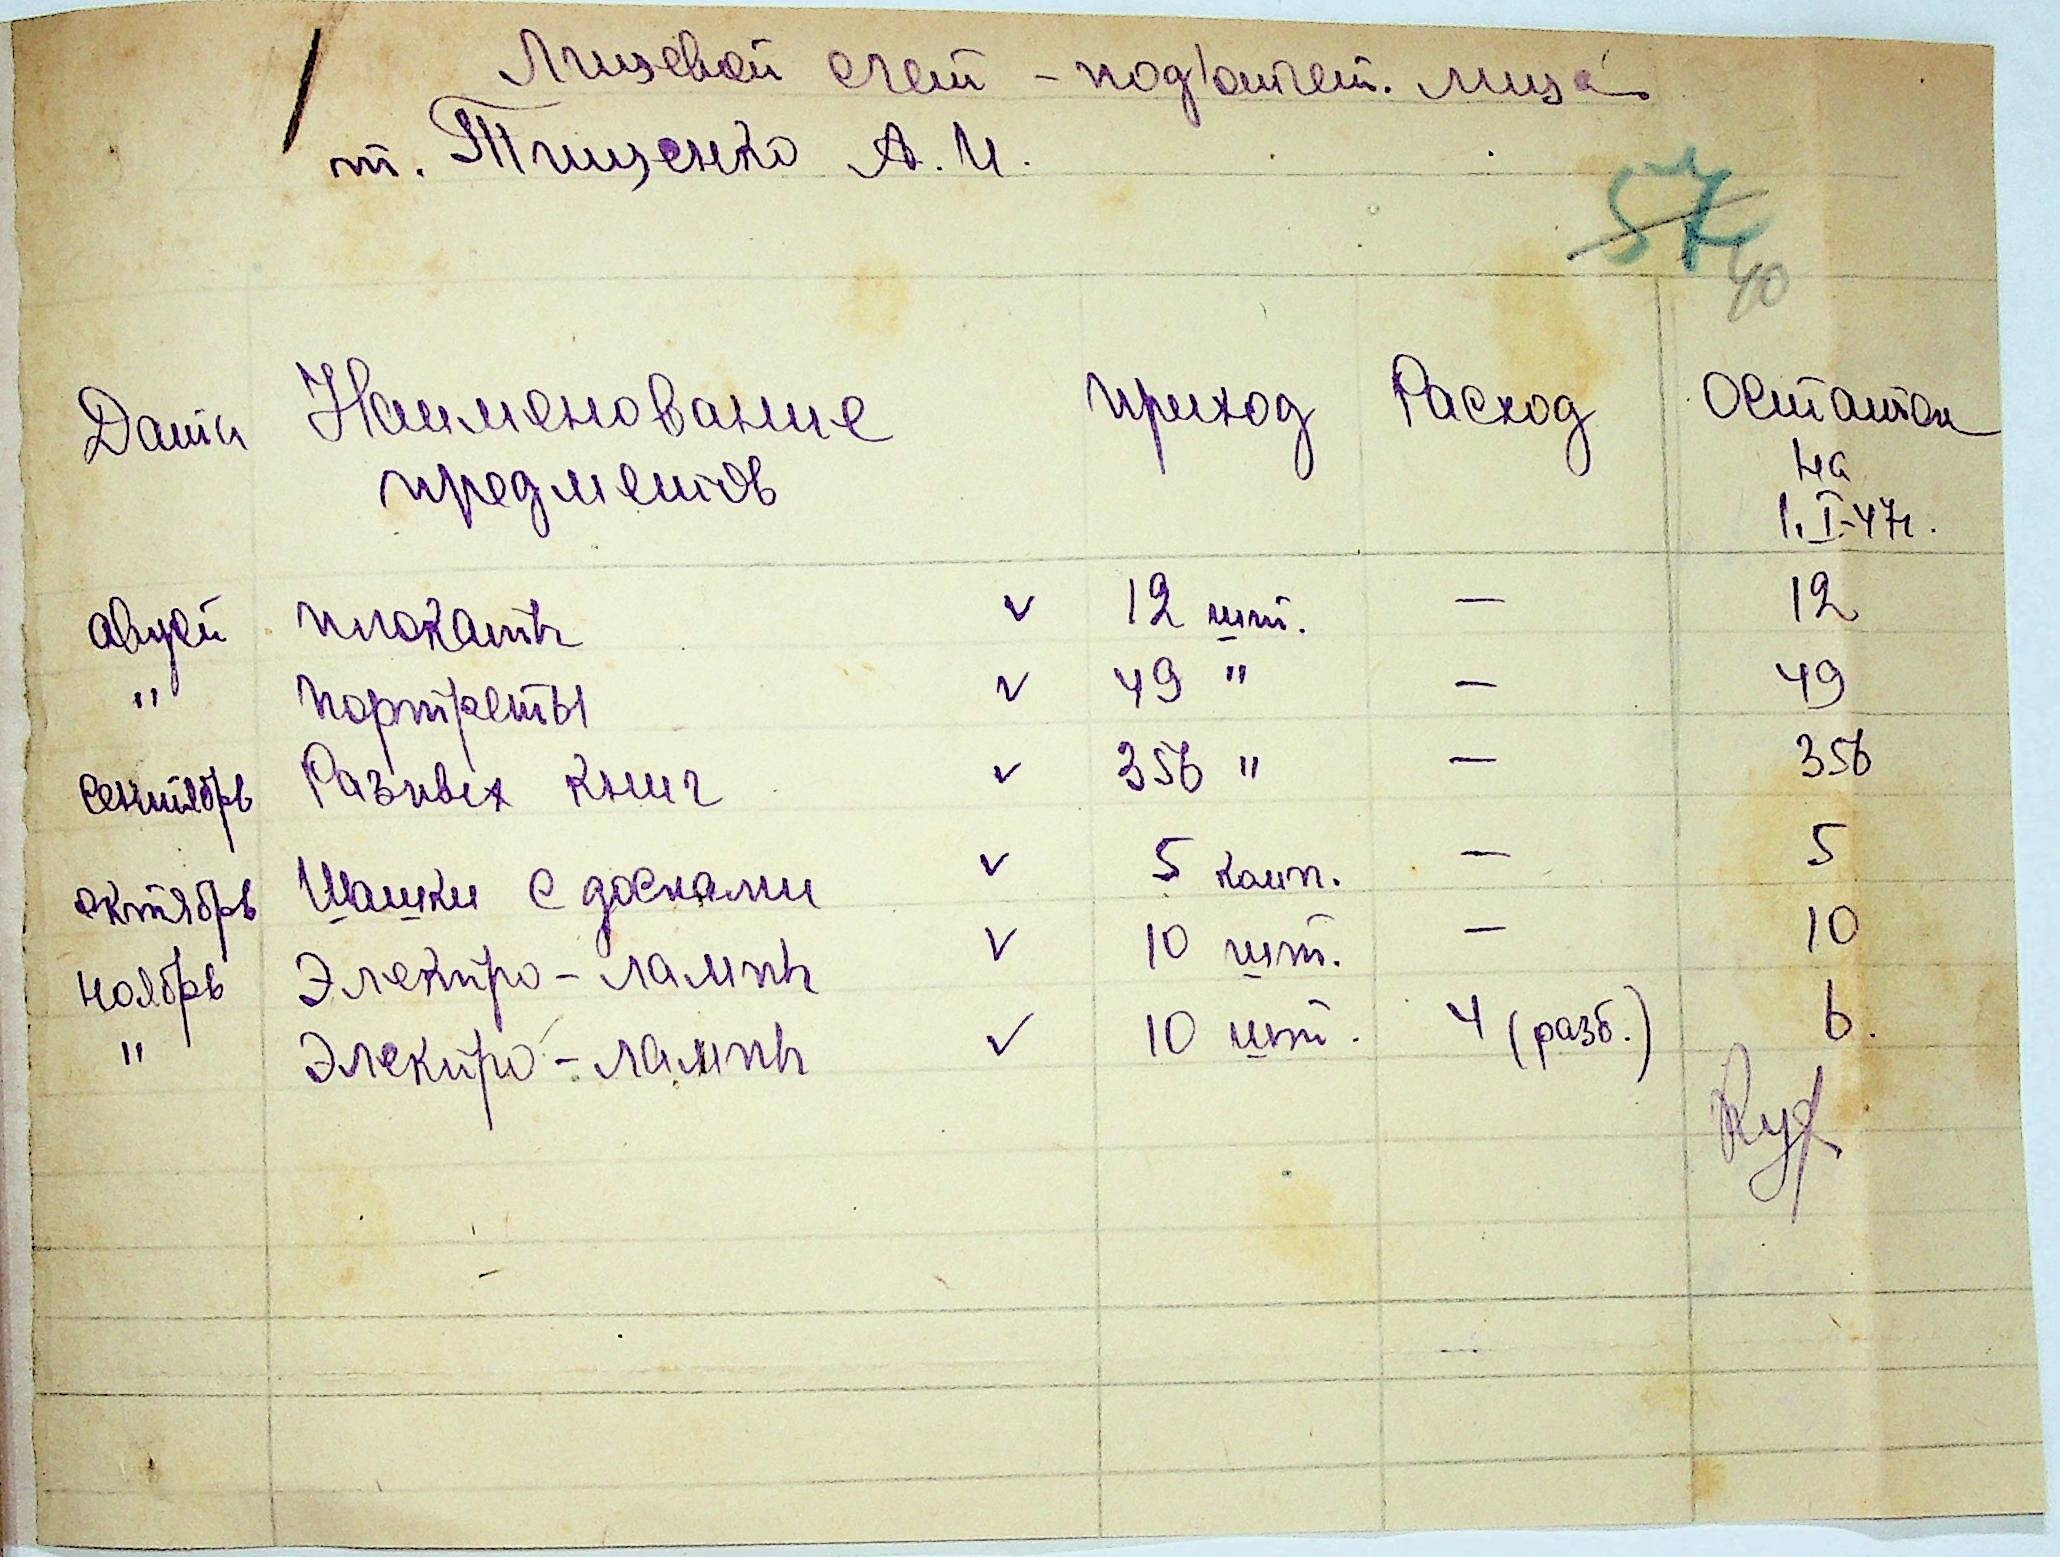 Лицевой счет - под'отчет. лица
т. Тищенко А.И.
57
40
Дата Наименование приход Расход Остаток
предметов на
1.I-47г.
август плокаты v 12 шт. — 12
" портреты v 49 " — 49
сентябрь Разных книг v 356 " — 356
октябрь Шашки с досками v 5 комп. — 5
ноябрь Электро-лампы v 10 шт. — 10
" Электро-лампы v 10 шт. 4 (разб.) 6.